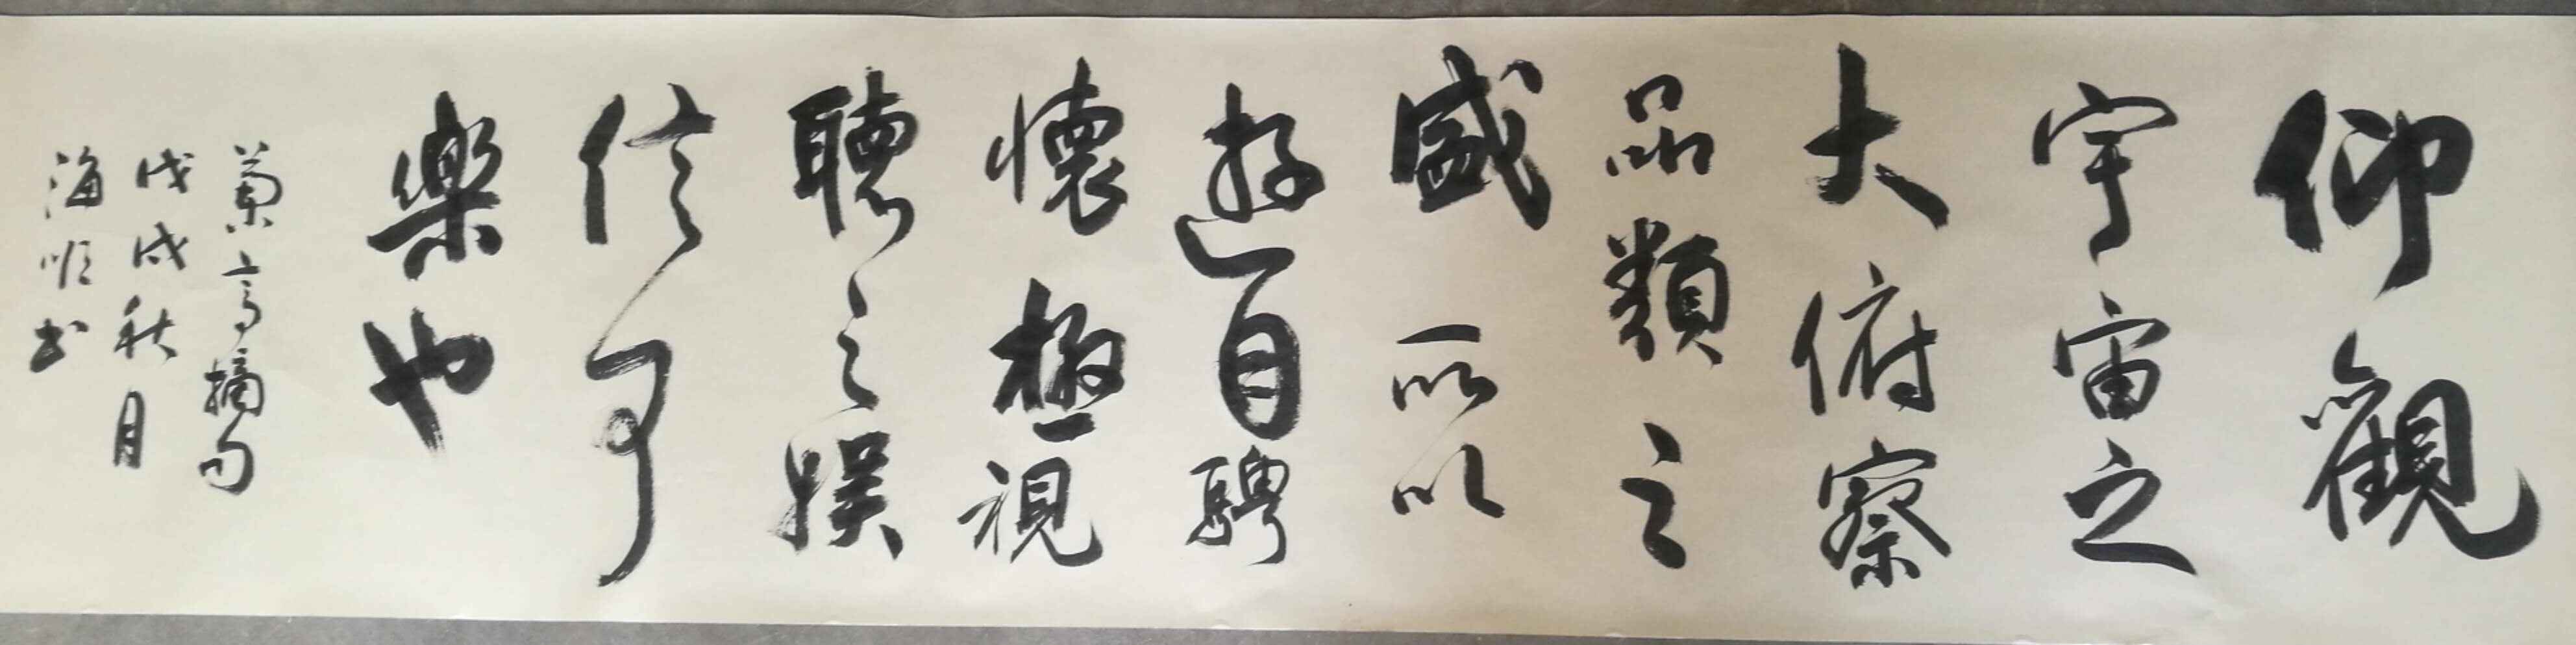 仰觀
宇宙之
大俯察
品類之
盛所以
遊目騁
懷極視
聽之娛
信可
樂也
蘭亭摘句
戊戌秋月
海順书